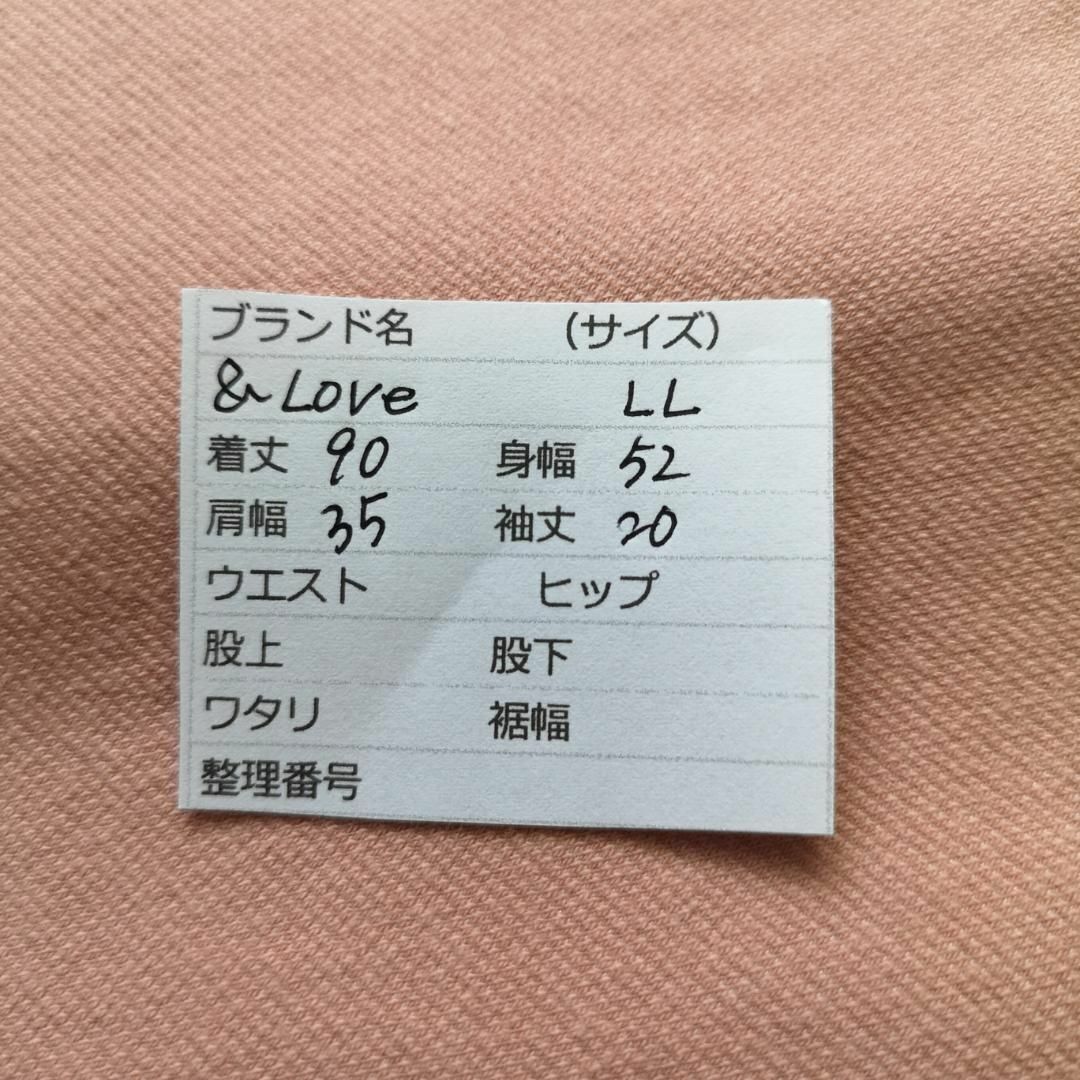 ブランド名 (サイズ)
&Love LL
着丈 90 身幅 52
肩幅 35 袖丈 20
ウエスト ヒップ
股上 股下
ワタリ 裾幅
整理番号